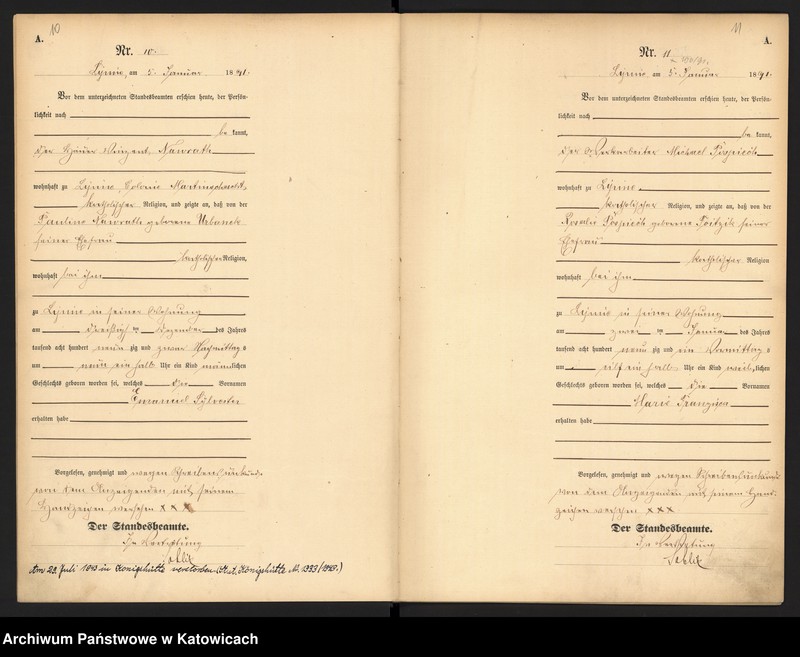 10
A.
Nr. 10.
Lipine, am 5. Januar 1891.
Vor dem unterzeichneten Standesbeamten erschien heute, der Persön-
lichkeit nach
be kannt,
der Häuer Vinzent Nawrath
wohnhaft zu Lipine, Colonie Martinschacht,
katholischer Religion, und zeigte an, daß von der
Pauline Nawrath geborene Urbanek
seiner Ehefrau
katholischer Religion,
wohnhaft bei ihm
zu Lipine in seiner Wohnung
am dreißigsten Dezember des Jahres
tausend acht hundert neunzig und zwar Nachmittags
um neun ein halb Uhr ein Kind männlichen
Geschlechts geboren worden sei, welches die Vornamen
Emanuel Sylvester
erhalten habe
Vorgelesen, genehmigt und wegen Schreibensunkunde
von dem Anzeigenden mit seinem
Handzeichen versehen XXX
Der Standesbeamte.
In Vertretung
Am 29. Juli in Königshütte verstorben
11
A.
Nr. 11
Lipine am 5. Januar 1891.
Vor dem unterzeichneten Standesbeamten erschien heute, der Persön-
lichkeit nach
be kannt,
Michael Pospiech
wohnhaft zu Lipine
katholischer Religion, und zeigte an, daß von der
Rosalie Pospiech geborene seiner
Ehefrau
katholischer Religion
wohnhaft bei ihm
zu Lipine in seiner Wohnung
am zwei ten Januar des Jahres
tausend acht hundert neun zig und ein Vormittags
um elf ein halb Uhr ein Kind weiblichen
Geschlechts geboren worden sei, welches die Vornamen
Marie Franziska
erhalten habe
Vorgelesen, genehmigt und wegen Schreibensunkunde
von dem Anzeigenden mit seinem Hand-
zeichen versehen XXX
Der Standesbeamte.
In Vertretung
Archiwum Państwowe w Katowicach